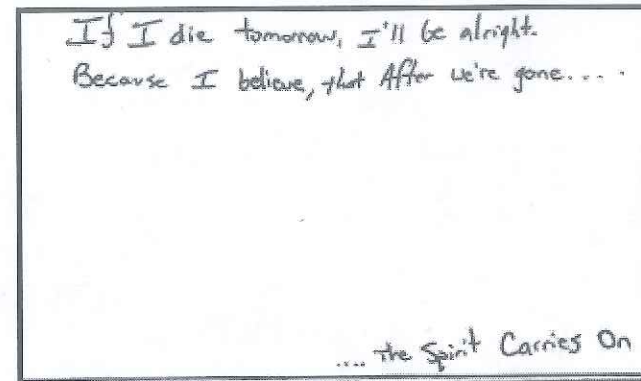 If I die tomorrow, I'll be alright.
Because I believe, that After we're gone....
.... the Spirit Carries On